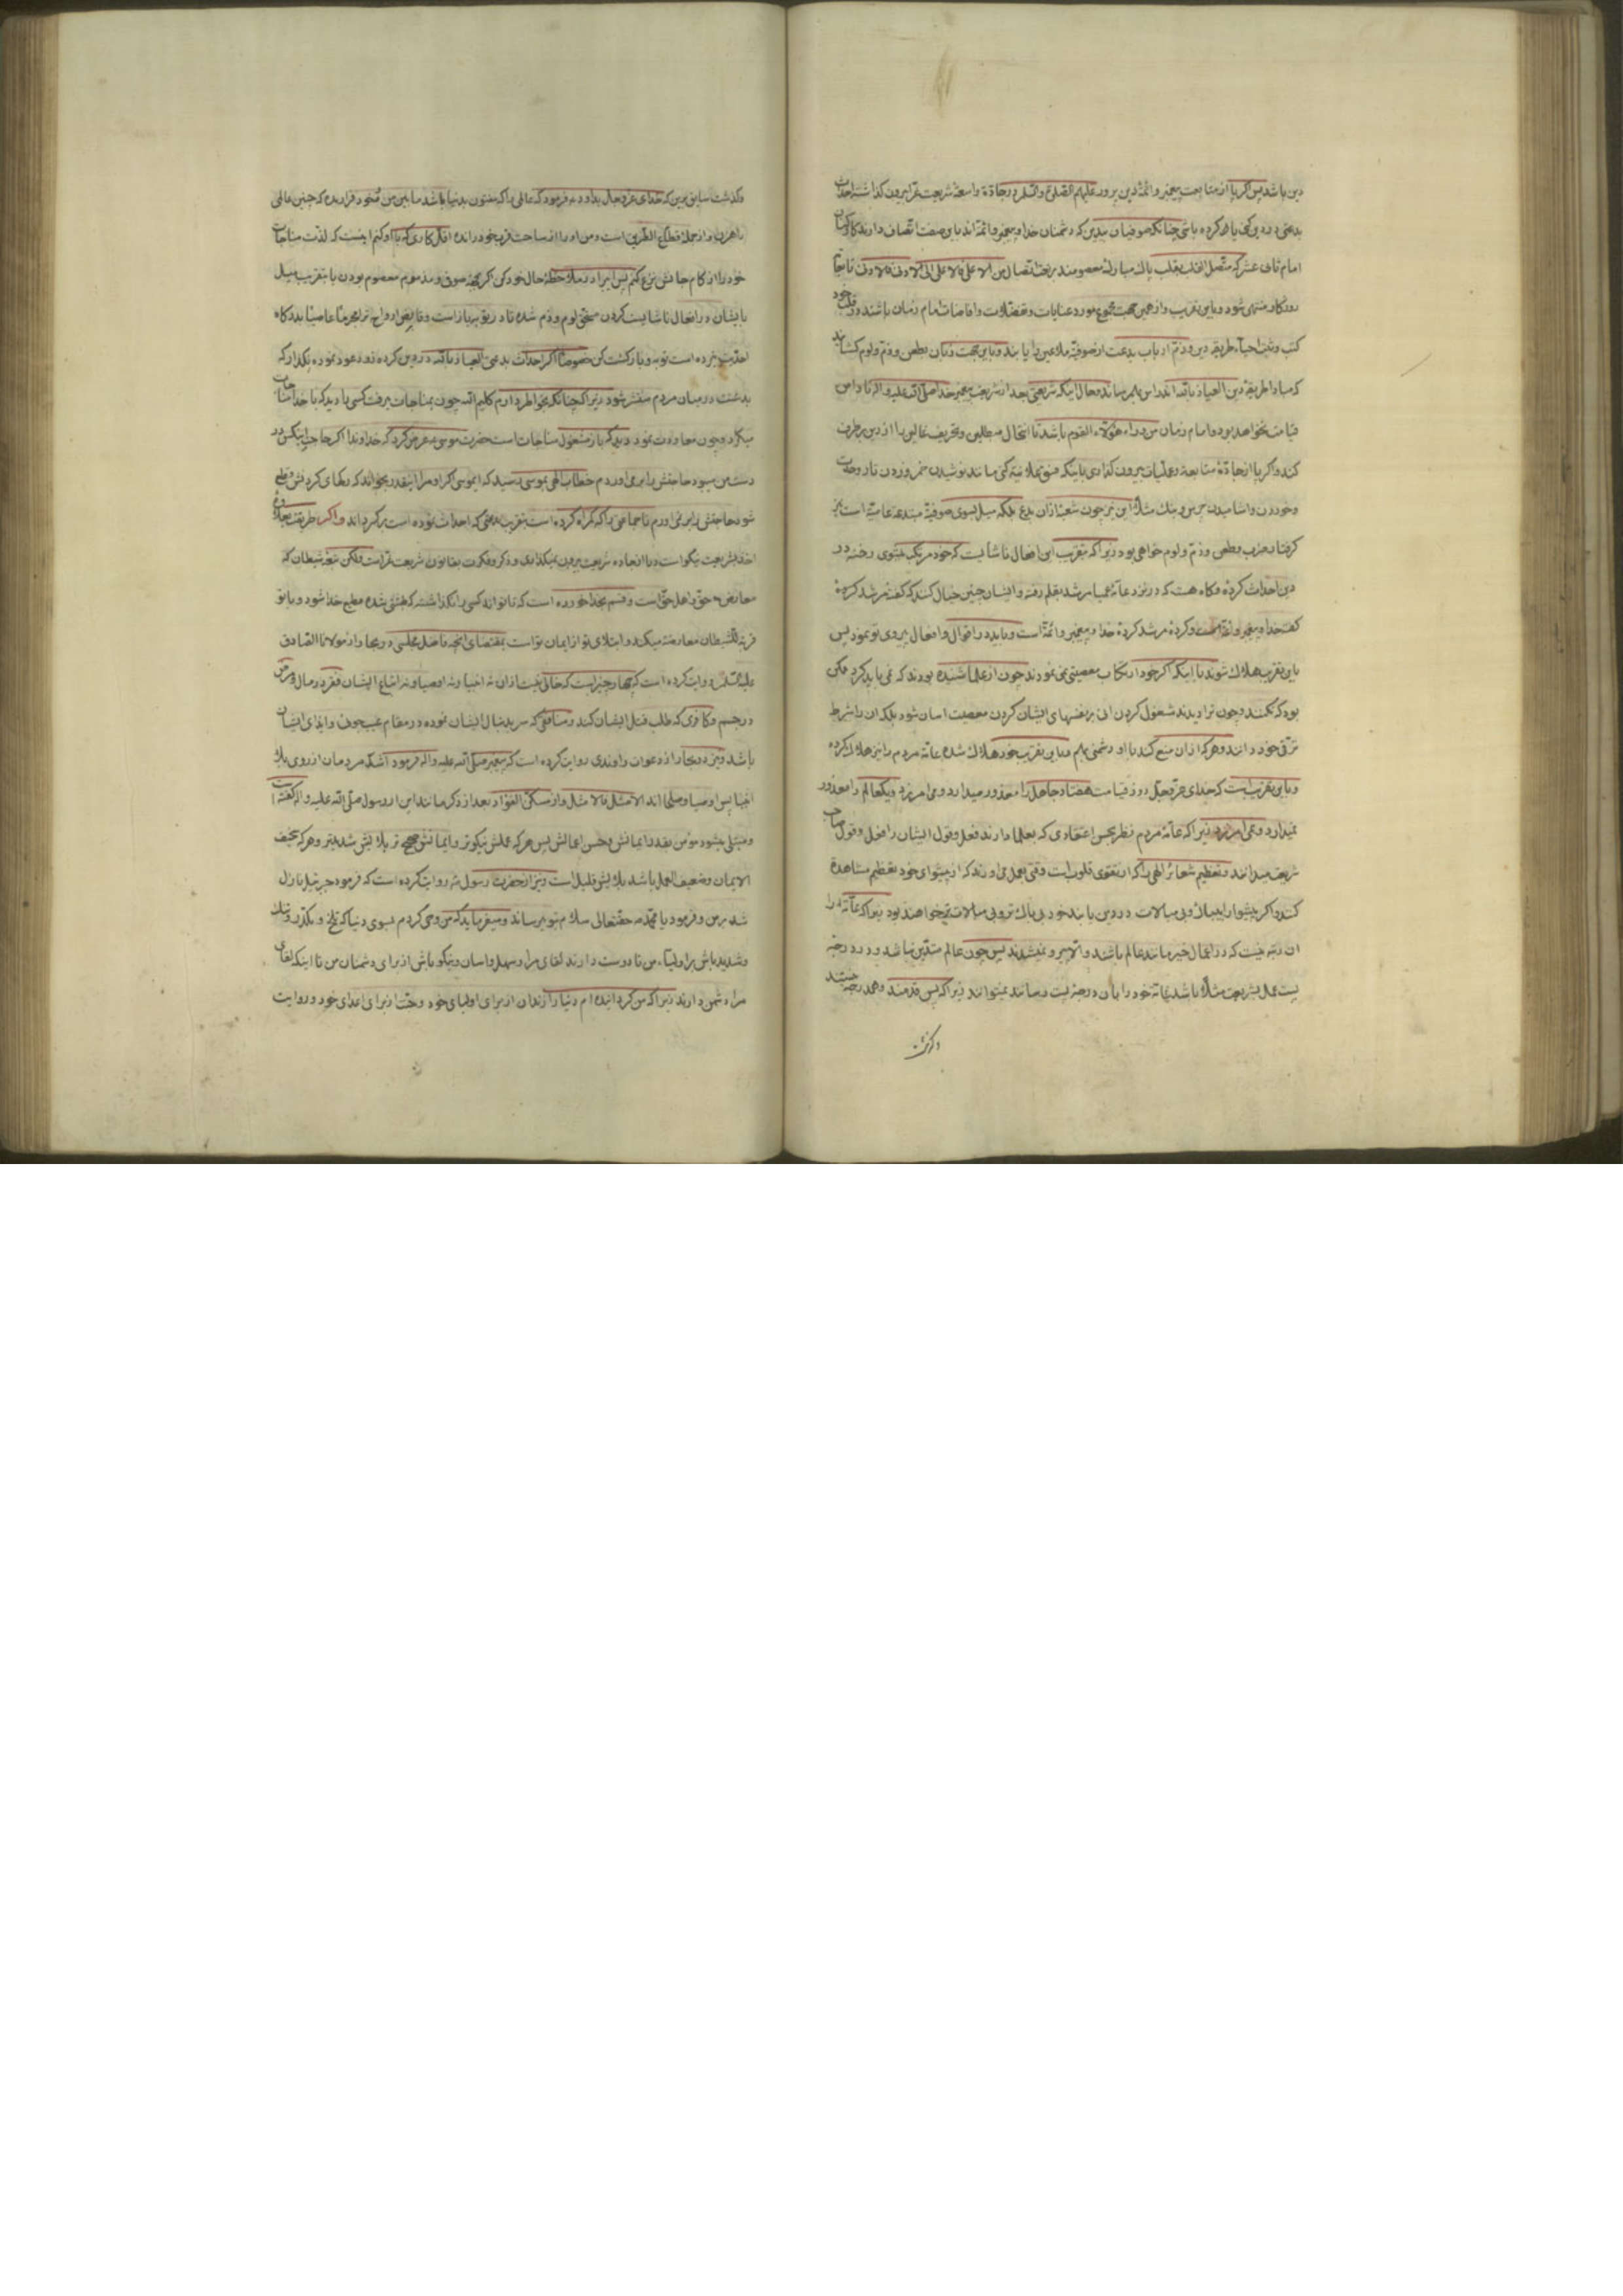 دین باشد پس اگر پا از متابعت پیغمبر و ائمهٔ دین پرور علیهم الصلوة والسلم و از جادهٔ واسعهٔ شریعت غرّا بیرون گذاشته احداث
بدعتی در دین کرده باشی چنانکه صوفیان بیدین که دشمنان خدا و پیغمبر و ائمه اند باین صفت اتصاف دارند
امام ثانی عشر که متصل بقلب پاک مبارک معصومند من الاعلی فالاعلی الی الادون فالادون تا بجا
روزگار منتهی شود و باین تقریب و از همین جهت مورد عنایات و تفضلات و افاضات امام زمان باشند و در قلب خود
طریقه دین و ذم ارباب بدعت از صوفیهٔ ملاعین را یابند و باین جهت زبان بطعن و ذم و لوم گشایند
که مبادا طریقهٔ دین العیاذ بالله اندراس بهم رساند و حال اینکه شریعتی بعد از شریعت پیغمبر خدا صلی الله علیه واله تا دامن
قیامت نخواهد بود و امام زمان من وراء هؤلاء القوم باشد تا انتحال مبطلین و تحریف غالین را از دین برطرف
کند و اگر پا از جادهٔ متابعت در عملیات بیرون گذاری باینکه فسق علانیة کنی مانند نوشیدن خمر و زدن تار و
و خوردن و آشامیدن چرس و بنک مثلاً این نیز چون شعبهٔ از ان بدع بلکه میل بسوی صوفیهٔ مبتدعه عامیه است نیز
گرفتار بعذاب و طعن و ذم و لوم خواهی بود زیرا که بتقریب این افعال ناشایست که خود مرتکب میشوی رخنه در
دین احداث کردهٔ و گاه هست که در نزد عامهٔ عمیا مرشد بقلم رفته و ایشان چنین خیال کنند که گفتهٔ مرشد کردهٔ
گفته خدا و پیغمبر و ائمه است و کردهٔ مرشد کردهٔ خدا و پیغمبر و ائمه است و باید در اقوال و افعال پیروی تو نمود پس
باین تقریب هلاک شوند با اینکه اگر خود ارتکاب معصیتی نمی نمودند چون از علما شنیده بودند که نمی باید کرد ممکن
بود که نکنند و چون ترا دیدند مشغول کردن آنی بر نفسهای ایشان کردن معصیت آسان شود بلکه آن را شرط
ترقی خود دانند و هر که از ان منع کند با او دشمنی و باین تقریب خود هلاک شده عامهٔ مردم را نیز هلاک کرده
و باین تقریب است که خدای عز و جل روز قیامت هفتاد جاهل را معذور میدارد و می امرزد و یک عالم را معذور
نمیدارد و نمی امرزد زیرا که عامهٔ مردم نظر بحسن اعتقادی که بعلما دارند فعل و قول ایشان را فعل و قول صاحب
شریعت میدانند و تعظیم شعائر الهی را که از تقوی قلوب است وقتی بعمل می اورند که از پیشوای خود تعظیم مشاهده
کنند و اگر پیشوا را بیباک و بی مبالات در دین یابند خود بی باک تر و بی مبالات تر خواهند بود زیرا که عامه را
آن رتبه نیست که در اعمال خیر مانند عالم باشند و الا پیرو نمیشدند پس چون عالم متدین نباشد و در درجهٔ
بیست عمل بشریعت مثلاً باشد عامه خود را بآن درجهٔ بیست رسانند نمیتوانند زیرا که پس قدمند
و گذشت
و گذشت سابق برین که خدای عز و جل بداود فرمود که عالمی را که مفتون بدنیا باشد مابین من و خود قرار مده که چنین عالمی
راهزن و از جملهٔ قطاع الطریق است و من او را از ساحت قرب خود رانده اقل کاری که با او کنم اینست که لذت مناجات
خود را از کام جانش نزع کنم پس ای برادر ملاحظهٔ حال خود کن اگر بتقریب میل
بایشان در افعال ناشایست کردن مستحق لوم و ذم شدهٔ تا در توبه باز است و قابض ارواح ترا مجرماً عاصیاً بدرگاه
احدیت نبرده است توبه و بازگشت کن خصوصاً اگر احداث بدعتی العیاذ بالله در دین کرده زود عود نموده مگذار که
بدعتت در میان مردم منتشر شود زیرا که چنانکه بخاطر دارم کلیم الله چون بمناجات میرفت کسی را دید که با خدا مناجات
میکرد و چون معاودت نمود دید که باز مشغول مناجات است حضرت موسی عرض کرد که خداوندا اگر حاجت اینکس در
دست من میبود حاجتش را بر می اوردم خطاب الهی بموسی رسید که ای موسی اگر او مرا اینقدر بخواند که رگهای گردنش قطع
شود حاجتش را بر نمی اورم تا جماعتی را که گمراه کرده است بتقریب بدعتی که احداث نموده است برگرداند و اگر طریقت
اخذ بشریعت نیکو است و پا از جاده شریعت بیرون نمیگذاری و ذکر و فکرت بقانون شریعت غرا است ولکن شیطان که
معارض حق و اهل حق است و قسم بخدا خورده است که تا تواند کسی را نگذاشته که مطیع خدا شود و با تو
قرینة للشیطان معارضه میکند و ابتلای تو از ایمان تو است بمقتضای آنچه فاضل مجلسی در بحار از مولانا الصادق
علیه السلام روایت کرده است که چهار چیز است که خالی نیست از ان نه انبیا و نه اوصیا و نه اتباع ایشان فقر در مال و مرض
در جسم و کافری که طلب قتل ایشان کند و منافقی که سر بدنبال ایشان نموده در مقام عیب جوئی و ایذای ایشان
باشد و نیز در بحار از دعوات راوندی روایت کرده است که پیغمبر صلی الله علیه واله فرمود اشد مردمان از روی بلا
انبیا پس اوصیا و صلحا اند الامثل فالامثل و از مسکن الفؤاد بعد از ذکر مانند این از رسول صلی الله علیه واله گفته است
و مبتلی میشود مؤمن بقدر ایمانش و حسن اعمالش پس هر که عملش نیکوتر و ایمانش صحیح تر بلایش شدیدتر و هر که سخیف
الایمان و ضعیف العمل باشد بلایش قلیل است و نیز از حضرت رسول روایت کرده است که فرمود جبرئیل نازل
شد بر من و فرمود یا محمد حقتعالی سلام بتو میرساند و میفرماید که من وحی کردم بسوی دنیا که تلخ و مکدر و تنک
و شدید باش بر اولیاء من تا دوست دارند لقای مرا و سهل و اسان و نیکو باش از برای دشمنان من تا اینکه لقای
مرا دشمن دارند زیرا که من گردانیده ام دنیا را زندان از برای اولیای خود و جنت از برای اعدای خود و روایت